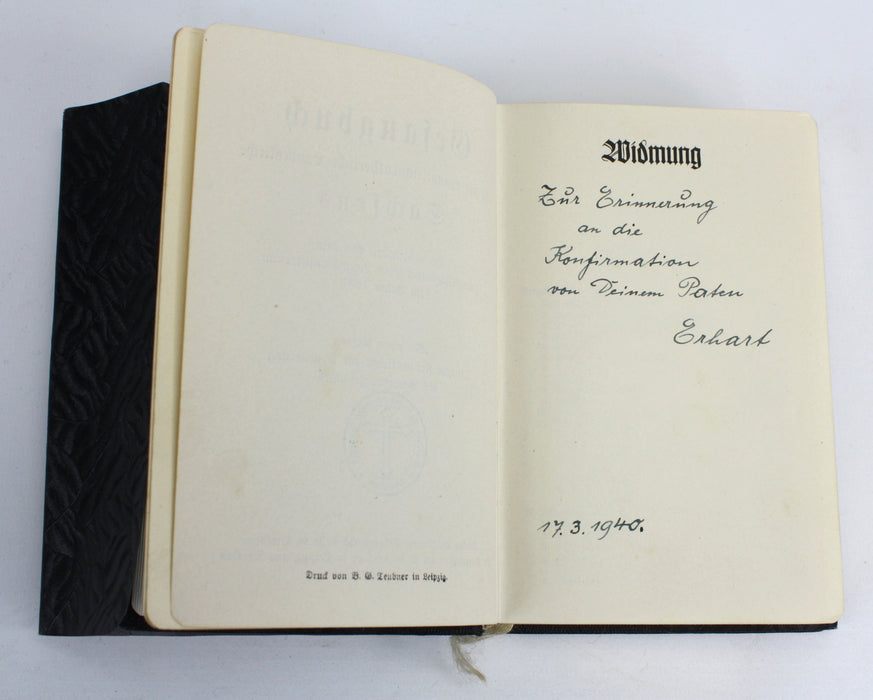 Druck von B. G. Teubner in Leipzig.
Widmung
Zur Erinnerung
an die
Konfirmation
von Deinem Paten
Erhart
17.3.1940.